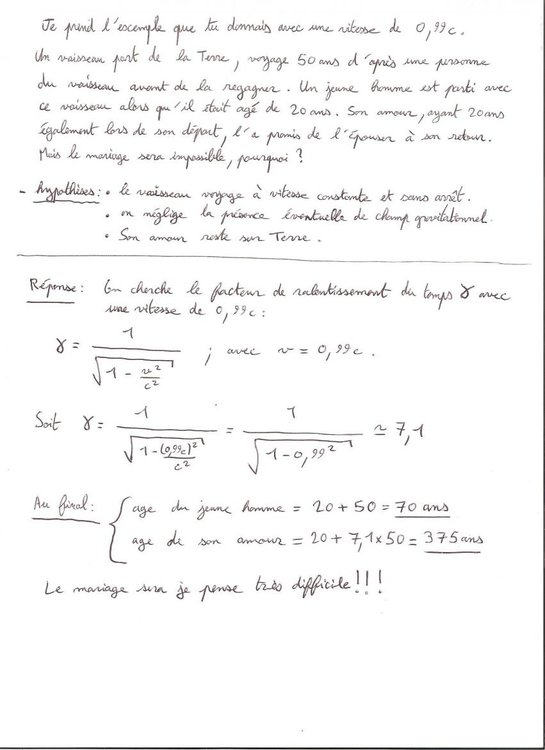 Je prend l'exemple que tu donnais avec une vitesse de 0,99c.
Un vaisseau part de la Terre, voyage 50 ans d'après une personne
du vaisseau avant de la regagner. Un jeune homme est parti avec
ce vaisseau alors qu'il était agé de 20 ans. Son amour, ayant 20 ans
également lors de son départ, l'a promis de l'épouser à son retour.
Mais le mariage sera impossible, pourquoi ?
- Hypothèses : • le vaisseau voyage à vitesse constante et sans arrêt.
• on néglige la présence éventuelle de champ gravitationnel.
• Son amour reste sur Terre.
Réponse : On cherche le facteur de ralentissement du temps γ avec
une vitesse de 0,99c :
γ = 1 / √(1 - v²/c²) ; avec v = 0,99c.
Soit γ = 1 / √(1 - (0,99c)²/c²) = 1 / √(1 - 0,99²) ≃ 7,1
Au final : { age du jeune homme = 20 + 50 = 70 ans
age de son amour = 20 + 7,1 x 50 = 375 ans
Le mariage sera je pense très difficile !!!